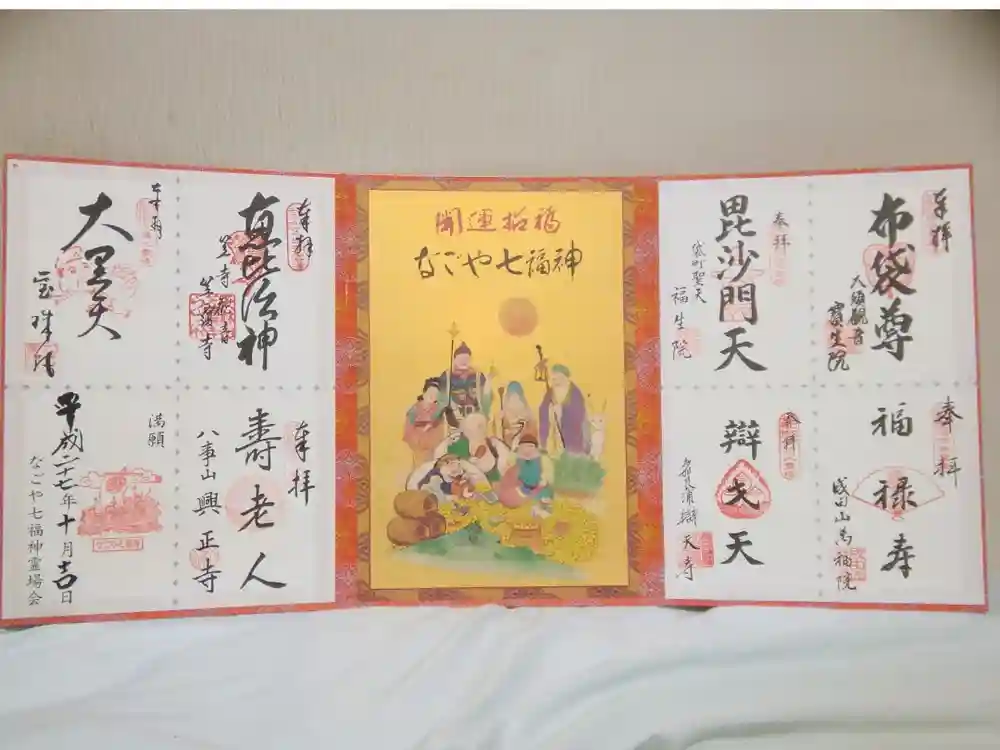 奉拝
布袋尊
大須観音
寳生院
奉拝
福禄寿
成田山萬福院
奉拝
毘沙門天
袋町聖天
福生院
奉拝
辯天
辯天寺
開運招福
なごや七福神
奉拝
恵比須神
笠寺観音
笠覆寺
奉拝
壽老人
八事山興正寺
奉拝
大黒天
宝珠院
満願
平成二十七年十月
日
なごや七福神霊場会